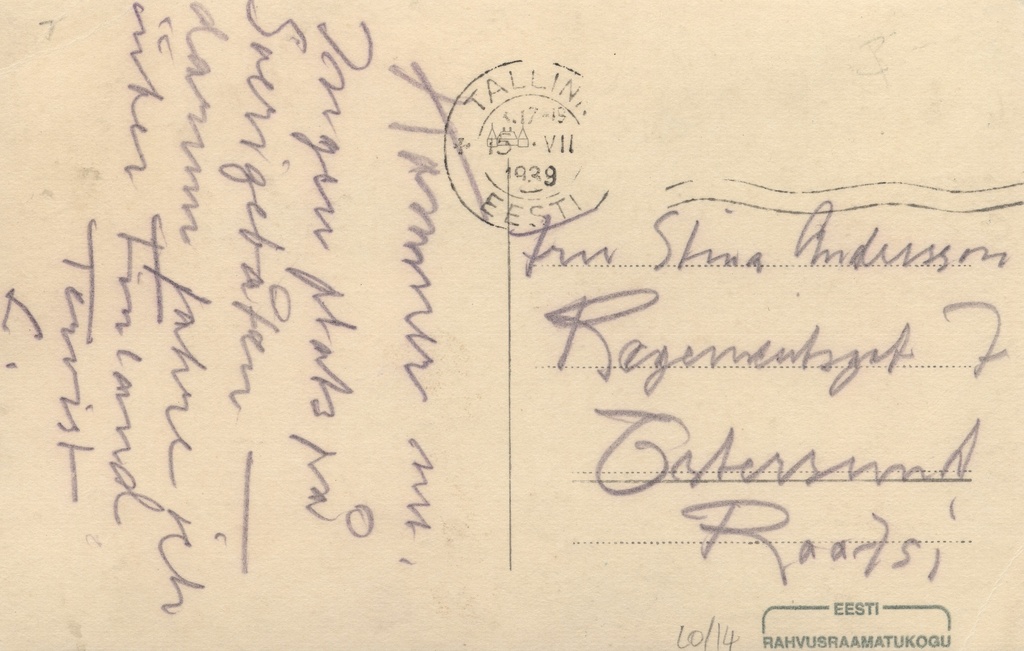 Kommer nu.
Ingen plats på
Sverigebåten
darum fahre ich
über Finland
Tervist
L.
TALLINN
17-19
15 VII
1939
EESTI
Fru Stina Andersson
Regementsgat 7
Östersund
Rootsi
10/14
EESTI
RAHVUSRAAMATUKOGU